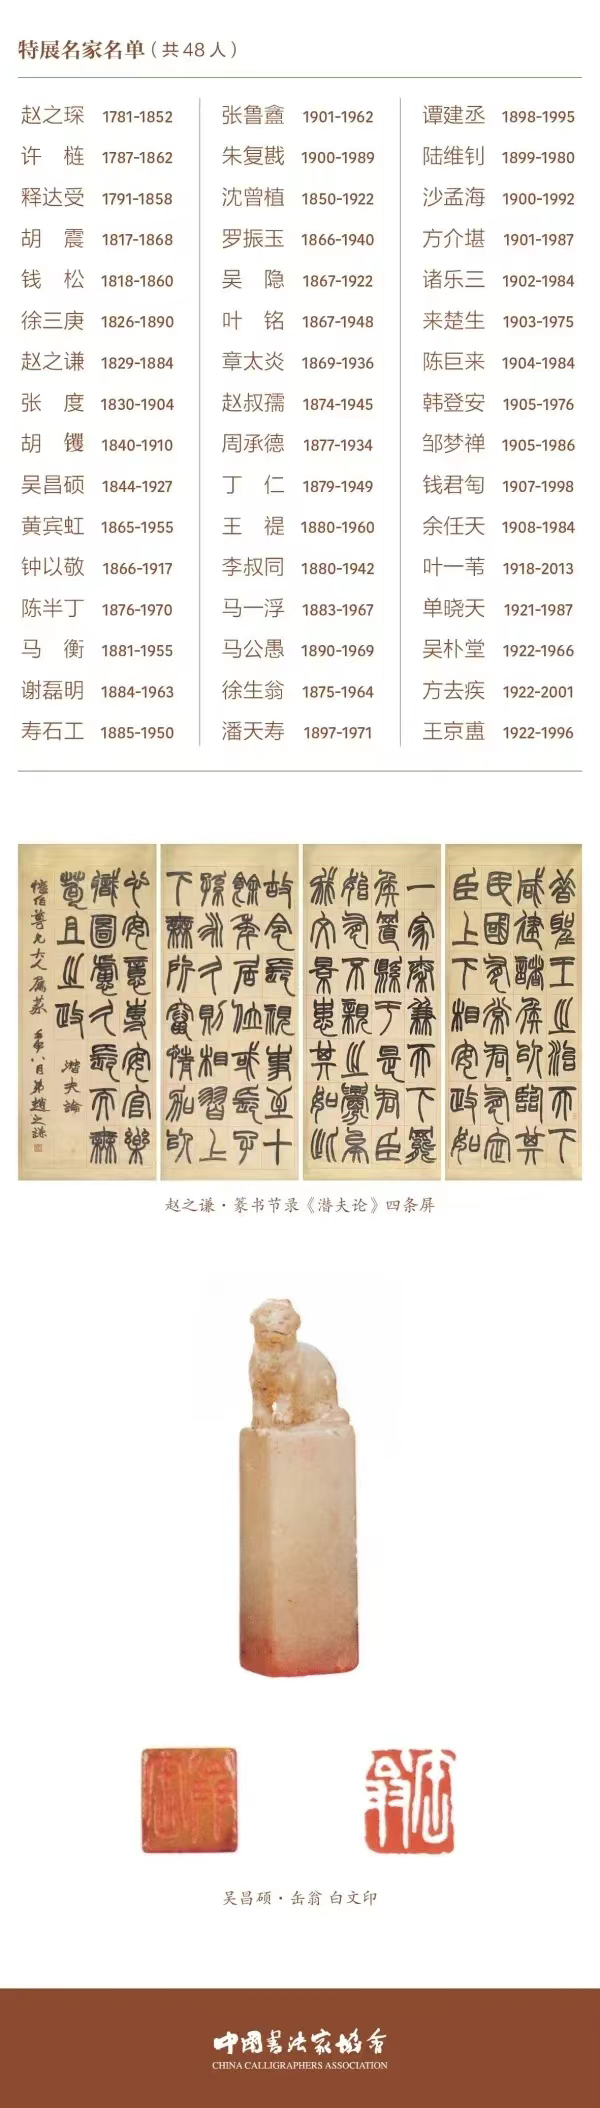 特展名家名单（共48人）
赵之琛 1781-1852
许 梿 1787-1862
释达受 1791-1858
胡 震 1817-1868
钱 松 1818-1860
徐三庚 1826-1890
赵之谦 1829-1884
张 度 1830-1904
胡 䦆 1840-1910
吴昌硕 1844-1927
黄宾虹 1865-1955
钟以敬 1866-1917
陈半丁 1876-1970
马 衡 1881-1955
谢磊明 1884-1963
寿石工 1885-1950
张鲁盦 1901-1962
朱复戡 1900-1989
沈曾植 1850-1922
罗振玉 1866-1940
吴 隐 1867-1922
叶 铭 1867-1948
章太炎 1869-1936
赵叔孺 1874-1945
周承德 1877-1934
丁 仁 1879-1949
王 禔 1880-1960
李叔同 1880-1942
马一浮 1883-1967
马公愚 1890-1969
徐生翁 1875-1964
潘天寿 1897-1971
谭建丞 1898-1995
陆维钊 1899-1980
沙孟海 1900-1992
方介堪 1901-1987
诸乐三 1902-1984
来楚生 1903-1975
陈巨来 1904-1984
韩登安 1905-1976
邹梦禅 1905-1986
钱君匋 1907-1998
余任天 1908-1984
叶一苇 1918-2013
单晓天 1921-1987
吴朴堂 1922-1966
方去疾 1922-2001
王京盙 1922-1996
昔聖王之治天下
咸建諸侯以臨其
民國有常君有定
臣上下相安政如
一家秦兼天下罷
侯置縣于是君臣
始有不親之釁焉
我文景患其如此
故令長視事至十
餘年居位或長子
孫永久則相習上
下無所竄情加以
心安意專安官樂
職圖慮久長而無
苟且之政 潛夫論
伯尊兄大人屬篆 八月弟趙之謙
赵之谦·篆书节录《潜夫论》四条屏
缶翁
吴昌硕·缶翁 白文印
中国书法家协会
CHINA CALLIGRAPHERS ASSOCIATION